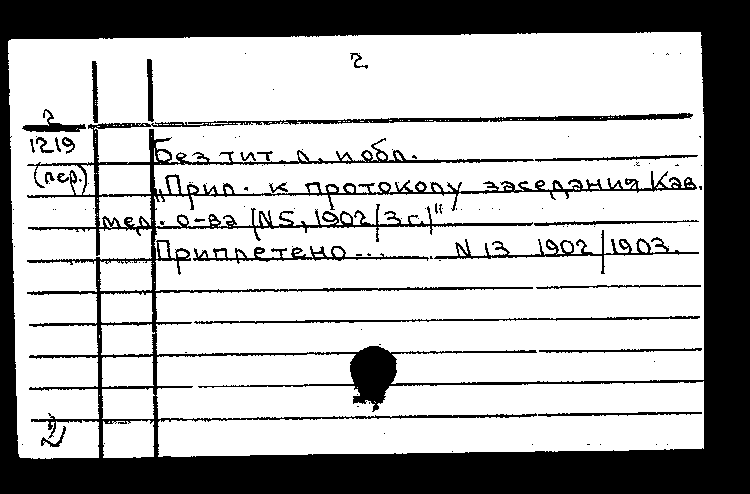 2.
2
1219
(пер.)
Без тит. л. и обл.
„Прил. к протоколу заседания Кав.
мед. о-ва (N5, 1902/3 г.)"
Приплетено... N 13 1902/1903.
2